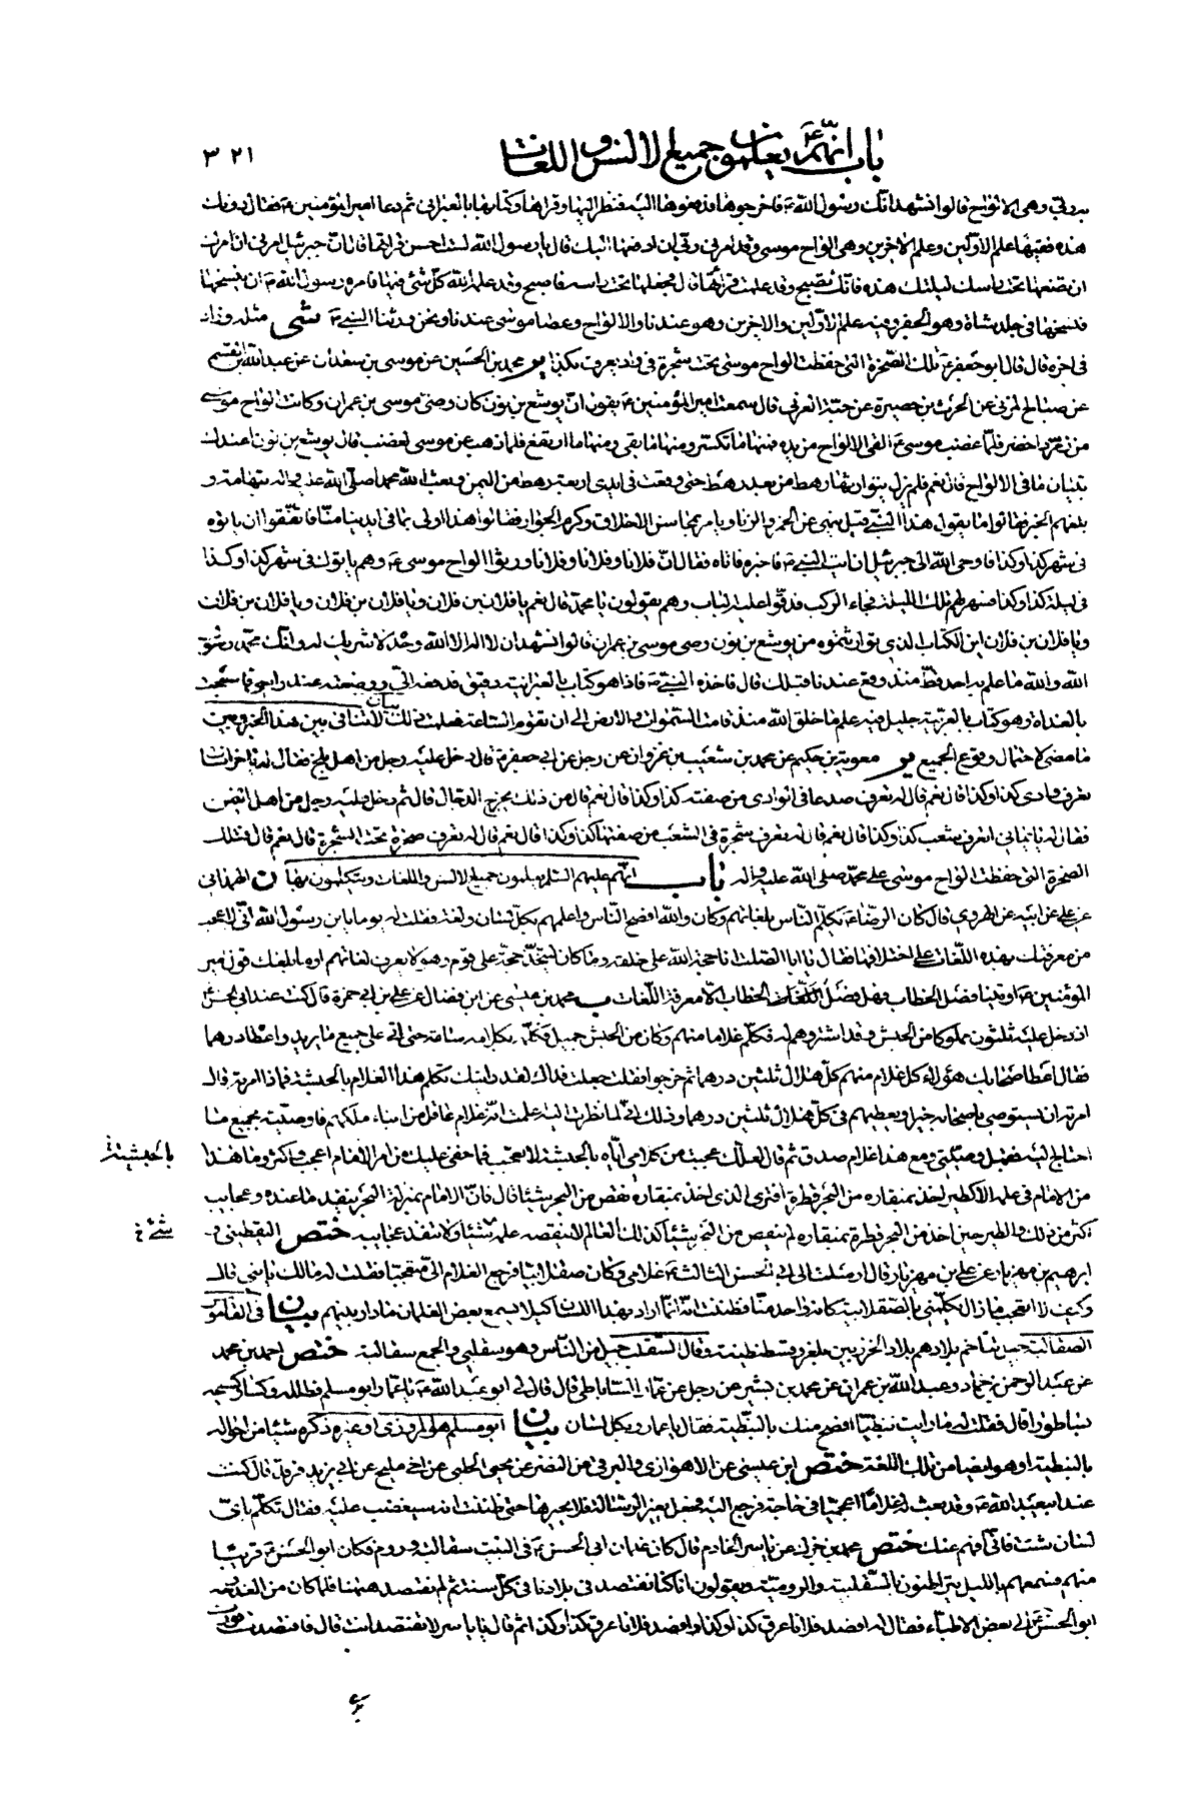 باب انهم ع يعلمون جميع الالسن و اللغات ٣٢١
وهى الالواح قالوا نشهد انك رسول الله ص فاخرجوها فدفعوها اليه فنظر اليها وقراها وكتابها بالعبرانى ثم دعا امير المؤمنين ع فقال دونك
هذه ففيها علم الاولين وعلم الاخرين وهى الواح موسى وقد امرنى ربى ان ادفعها اليك قال يا رسول الله لست احسن قرائتها قال ان جبرئيل امرنى ان امرك
ان تضعها تحت راسك ليلتك هذه فانك تصبح وقد علمت قرائتها قال فجعلها تحت راسه فاصبح وقد علمه الله كل شئ فيها فامره رسول الله ص ان ينسخها
فنسخها فى جلد شاة وهو الجفر وفيه علم الاولين والاخرين وهو عندنا والالواح وعصا موسى عندنا ونحن ورثنا النبى ص شى مثله وزاد
فى اخره قال قال ابو جعفر ع تلك الصخرة التى حفظت الواح موسى تحت شجرة فى واد يعرف بكذا ير محمد بن الحسين عن موسى بن سعدان عن عبد الله بن القسم
عن صباح المزنى عن الحرث بن حصيرة عن حبة العرنى قال سمعت امير المؤمنين ع يقول ان يوشع بن نون كان وصى موسى بن عمران وكانت الواح موسى
من زمرد اخضر فلما غضب موسى ع القى الالواح من يده فمنها ما تكسر ومنها ما بقى ومنها ما ارتفع فلما ذهب عن موسى الغضب قال يوشع بن نون اعندك
تبيان ما فى الالواح قال نعم فلم يزل يتوارثها رهط من بعد رهط حتى وقعت فى ايدى اربعة رهط من اليمن وبعث الله محمدا صلى الله عليه واله بتهامة و
بلغهم الخبر فقالوا ما يقول هذا النبى قيل ينهى عن الخمر والزنا ويامر بمحاسن الاخلاق وكرم الجوار فقالوا هذا اولى بما فى ايدينا منا فاتفقوا ان ياتوه
فى شهر كذا وكذا فاوحى الله الى جبرئيل ان ائت النبى ص فاخبره فاتاه فقال ان فلانا وفلانا وفلانا وفلانا ورثوا الواح موسى ع وهم ياتوك فى شهر كذا وكذا
فى ليلة كذا وكذا فسهر لهم تلك الليلة فجاء الركب فدقوا عليه الباب وهم يقولون يا محمد قال نعم يا فلان بن فلان ويا فلان بن فلان ويا فلان بن فلان
ويا فلان بن فلان اين الكتاب الذى توارثتموه من يوشع بن نون وصى موسى بن عمران قالوا نشهد ان لا اله الا الله وحده لا شريك له وانك محمد رسول
الله والله ما علم به احد قط منذ وقع عندنا قبلك قال فاخذه النبى ص فاذا هو كتاب بالعبرانية دقيق فدفعه الى ووضعته عند راسى فاصبحت
بالغداة وهو كتاب بالعربية جليل فيه علم ما خلق الله منذ قامت السموات والارض الى ان تقوم الساعة فعلمت ذلك بيان لا تنافى بين هذا الخبر وبين
ما مضى لاحتمال وقوع الجميع ير معوية بن حكيم عن محمد بن شعيب بن غزوان عن رجل عن ابى جعفر ع قال دخل عليه رجل من اهل بلخ فقال له يا خراسانى
تعرف وادى كذا وكذا قال نعم قال له تعرف صدعا فى الوادى من صفته كذا وكذا قال نعم قال من ذلك يخرج الدجال قال ثم دخل عليه رجل من اهل اليمن
فقال له يا يمانى اتعرف شعب كذا وكذا قال نعم قال له تعرف شجرة فى الشعب من صفتها كذا وكذا قال نعم قال له تعرف صخرة تحت الشجرة قال نعم قال فتلك
الصخرة التى حفظت الواح موسى على محمد صلى الله عليه واله باب انهم عليهم السلام يعلمون جميع الالسن واللغات ويتكلمون بها ن الهمدانى
عن على عن ابيه عن الهروى قال كان الرضا ع يكلم الناس بلغاتهم وكان والله افصح الناس واعلمهم بكل لسان ولغة فقلت له يوما يا بن رسول الله انى لاعجب
من معرفتك بهذه اللغات على اختلافها فقال يا ابا الصلت انا حجة الله على خلقه وما كان ليتخذ حجة على قوم وهو لا يعرف لغاتهم اوما بلغك قول امير
المؤمنين ع اوتينا فصل الخطاب فهل فصل الخطاب الا معرفة اللغات ب محمد بن عيسى عن ابن فضال عن على بن ابى حمزة قال كنت عند ابى الحسن
اذ دخل عليه ثلثون مملوكا من الحبش وقد اشتروهم له فكلم غلاما منهم وكان من الحبش جميل فكلمه بكلامه ساعة حتى اتى على جميع ما يريد واعطاه درهما
فقال اعط اصحابك هؤلاء كل غلام منهم كل هلال ثلثين درهما ثم خرجوا فقلت جعلت فداك لقد رايتك تكلم هذا الغلام بالحبشية فماذا امرته قال
امرته ان يستوصى باصحابه خيرا ويعطيهم فى كل هلال ثلثين درهما وذلك انى لما نظرت اليه علمت انه غلام عاقل من ابناء ملكهم فاوصيته بجميع ما
احتاج اليه فقبل وصيتى ومع هذا غلام صدق ثم قال لعلك عجبت من كلامى اياه بالحبشية لا تعجب فما خفى عليك من امر الامام اعجب واكثر وما هذا
بالحبشية
من الامام فى علمه الا كطير اخذ بمنقاره من البحر قطرة افترى الذى اخذ بمنقاره نقص من البحر شيئا قال فان الامام بمنزلة البحر لا ينفد ما عنده وعجايبه
اكثر من ذلك والطير حين اخذ من البحر قطرة بمنقاره لم ينقص من البحر شيئا كذلك العالم لا ينقصه علمه شيئا ولا تنفد عجايبه ختص اليقطينى عن
شئ خ
ابرهيم بن مهزيار عن على بن مهزيار قال ارسلت الى ابى الحسن الثالث ع غلامى وكان صقلابيا فرجع الغلام الى متعجبا فقلت له مالك يا بنى قال
وكيف لا اتعجب ما زال يكلمنى بالصقلابية كانه واحد منا فظننت انه انما اراد بهذا اللسان كيلا يسمع بعض الغلمان ما دار بينهم بيان فى القاموس
الصقالبة جيل تتاخم بلادهم بلاد الخزر بين بلغر وقسطنطينة وقال السقلب جيل من الناس وهو سقلبى والجمع سقالبة ختص احمد بن محمد
عن عبد الرحمن بن حماد وعبد الله بن عمران عن محمد بن بشير عن رجل عن عمار الساباطى قال قال لى ابو عبد الله ع يا عمار ابو مسلم فظلله وكسا كسيحه
بساطورا قال فقلت له ما رايت نبطيا افصح منك بالنبطية فقال يا عمار وبكل لسان بيان ابو مسلم هو المروزى او غيره وذكره شيئا من احواله
بالنبطية او هو ايضا من تلك اللغة ختص ابن عيسى عن الاهوازى والبرقى عن النضر عن يحيى الحلبى عن اخى مليح عن ابى يزيد فرقد قال كنت
عند ابى عبد الله ع وقد بعث غلاما اعجميا فى حاجة فرجع اليه فجعل يغير الرسالة فلا يحيرها حتى ظننت انه سيغضب عليه فقال تكلم باى
لسان شئت فانى افهم عنك ختص محمد بن جزك عن ياسر الخادم قال كان غلمان ابى الحسن ع فى البيت سقالبة وروم فكان ابو الحسن ع قريبا
منهم فسمعهم بالليل يتراطنون بالسقلبية والرومية ويقولون انا كنا نفتصد فى بلادنا فى كل سنة ثم لم نفتصد ههنا فلما كان من الغد وجه
ابو الحسن ع الى بعض الاطباء فقال له افصد فلانا عرق كذا وكذا وافصد فلانا عرق كذا وكذا ثم قال يا ياسر لا تفتصد انت قال فافتصدت فورمت